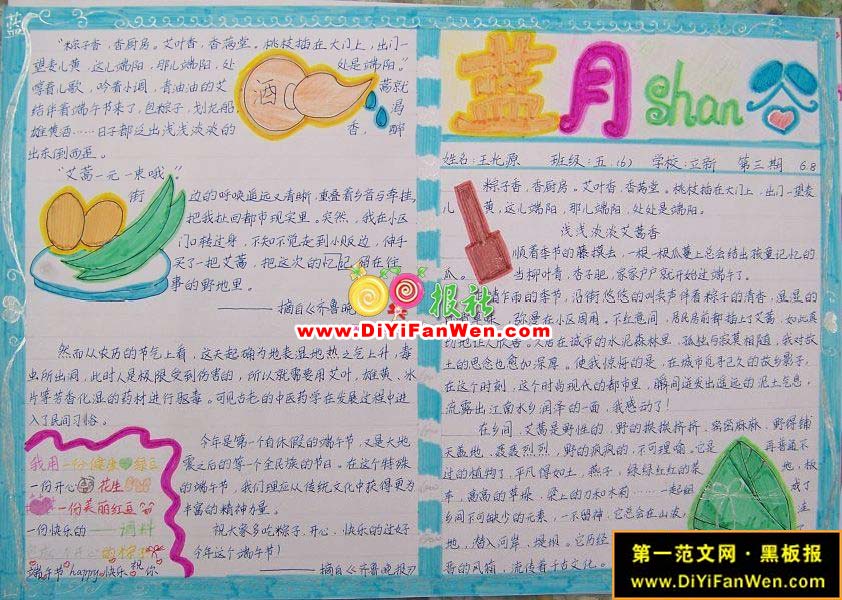 蓝月shan谷
姓名:王允源 班级:五(6) 学校:立新 第三期 6.8
粽子香,香厨房。艾叶香,香满堂。桃枝插在大门上,出门一望麦
儿黄,这儿端阳,那儿端阳,处处是端阳。
浅浅浓浓艾蒿香
顺着季节的藤摸去,一根一根瓜蔓上总会结出孩童记忆的
瓜。当柳叶青,杏子肥,家家户户就开始过端午了。
作雨的季节,沿街悠悠的叫卖声伴着粽子的清香,湿湿的
弥漫在小区周围。下红意间,居民房前都插上了艾蒿,如此真
切地让人欣喜。久居在城市的水泥森林里,孤独与寂寞相随,我对故
土的思念也愈加深厚。使我惊悸的是,在城市觅寻已久的故乡影子,
在这个时刻,这个时尚现代的都市里,瞬间迸发出遥远的泥土气息,
流露出江南水乡润泽的一面,我感动了!
在乡间,艾蒿是野性的,野的挨挨挤挤,密密麻麻,野得铺
天盖地,轰轰烈烈,野的疯疯的,不可理喻。它是再普通不
过的植物了,平凡得如土,燕子,绿绿红红的菜地,
车,高高的草垛,梁上的刀和木莉……一起组成了
乡间不可缺少的元素,一不留神,它总会在山坡,
地,潜入河岸、堤坝。它历经
香的风箱,流传着千古文化。
“粽子香,香厨房。艾叶香,香满堂。桃枝插在大门上,出门一
望麦儿黄,这儿端阳,那儿端阳,处处是端阳。”
哼着儿歌,吟着小调,青油油的艾蒿就
结伴着端午节来了,包粽子,划龙船,喝
雄黄酒……日子都这出浅浅浓浓的香,醉
出东倒西歪。
酒
“艾蒿一元一束哦”
街边的呼唤遥远又清晰,重叠着乡音与牵挂,
把我扯回都市现实里。突然,我在小区
门口转过身,不知不觉走到小贩边,伸手
买了一把艾蒿,把这次的忆记留在往
事的野地里。
——摘自《齐鲁晚
报社
www.DiYiFanWen.com
然而从农历的节气上看,这天起确为地表湿地热之气上升,毒
虫所出洞,此时人是极限受到伤害的,所以就需要用艾叶,雄黄、冰
片等芳香化湿的药材进行驱毒。可见古老的中医药学在发展过程中进
入了民间习俗。
今年是第一个自休假的端午节,又是大地
震之后的第一个全民族的节日。在这个特殊
的端午节,我们理应从传统文化中获得更为
丰富的精神力量。
祝大家多吃粽子,开心、快乐的过好
今年这个端午节!
——摘自《齐鲁晚报》
我用一份健康绿豆
一份开心花生
一份美丽红豆
一份快乐的——调料
端午节happy快乐祝你
第一范文网·黑板报
www.DiYiFanWen.com